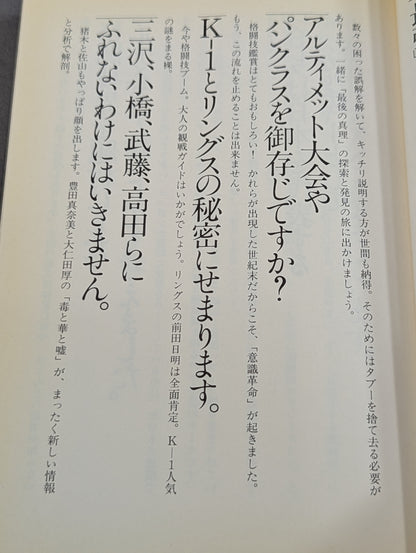 数々の困った誤解を解いて、キッチリ説明する方が世間も納得。そのためにはタブーを捨て去る必要が
あります。一緒に「最後の真理」の探索と発見の旅に出かけましょう。
アルティメット大会や
パンクラスを御存じですか?
格闘技鑑賞はとてもおもしろい! かれらが出現した世紀末だからこそ、「意識革命」が起きました。
もう、この流れを止めることは出来ません。
K―1とリングスの秘密にせまります。
今や格闘技ブーム。大人の観戦ガイドはいかがでしょう。リングスの前田日明は全面肯定。K―1人気
の謎をまる裸。
三沢、小橋、武藤、高田らに
ふれないわけにはいきません。
猪木と佐山もやっぱり顔を出します。豊田真奈美と大仁田厚の「毒と華と嘘」が、まったく新しい情報
と分析で解剖。